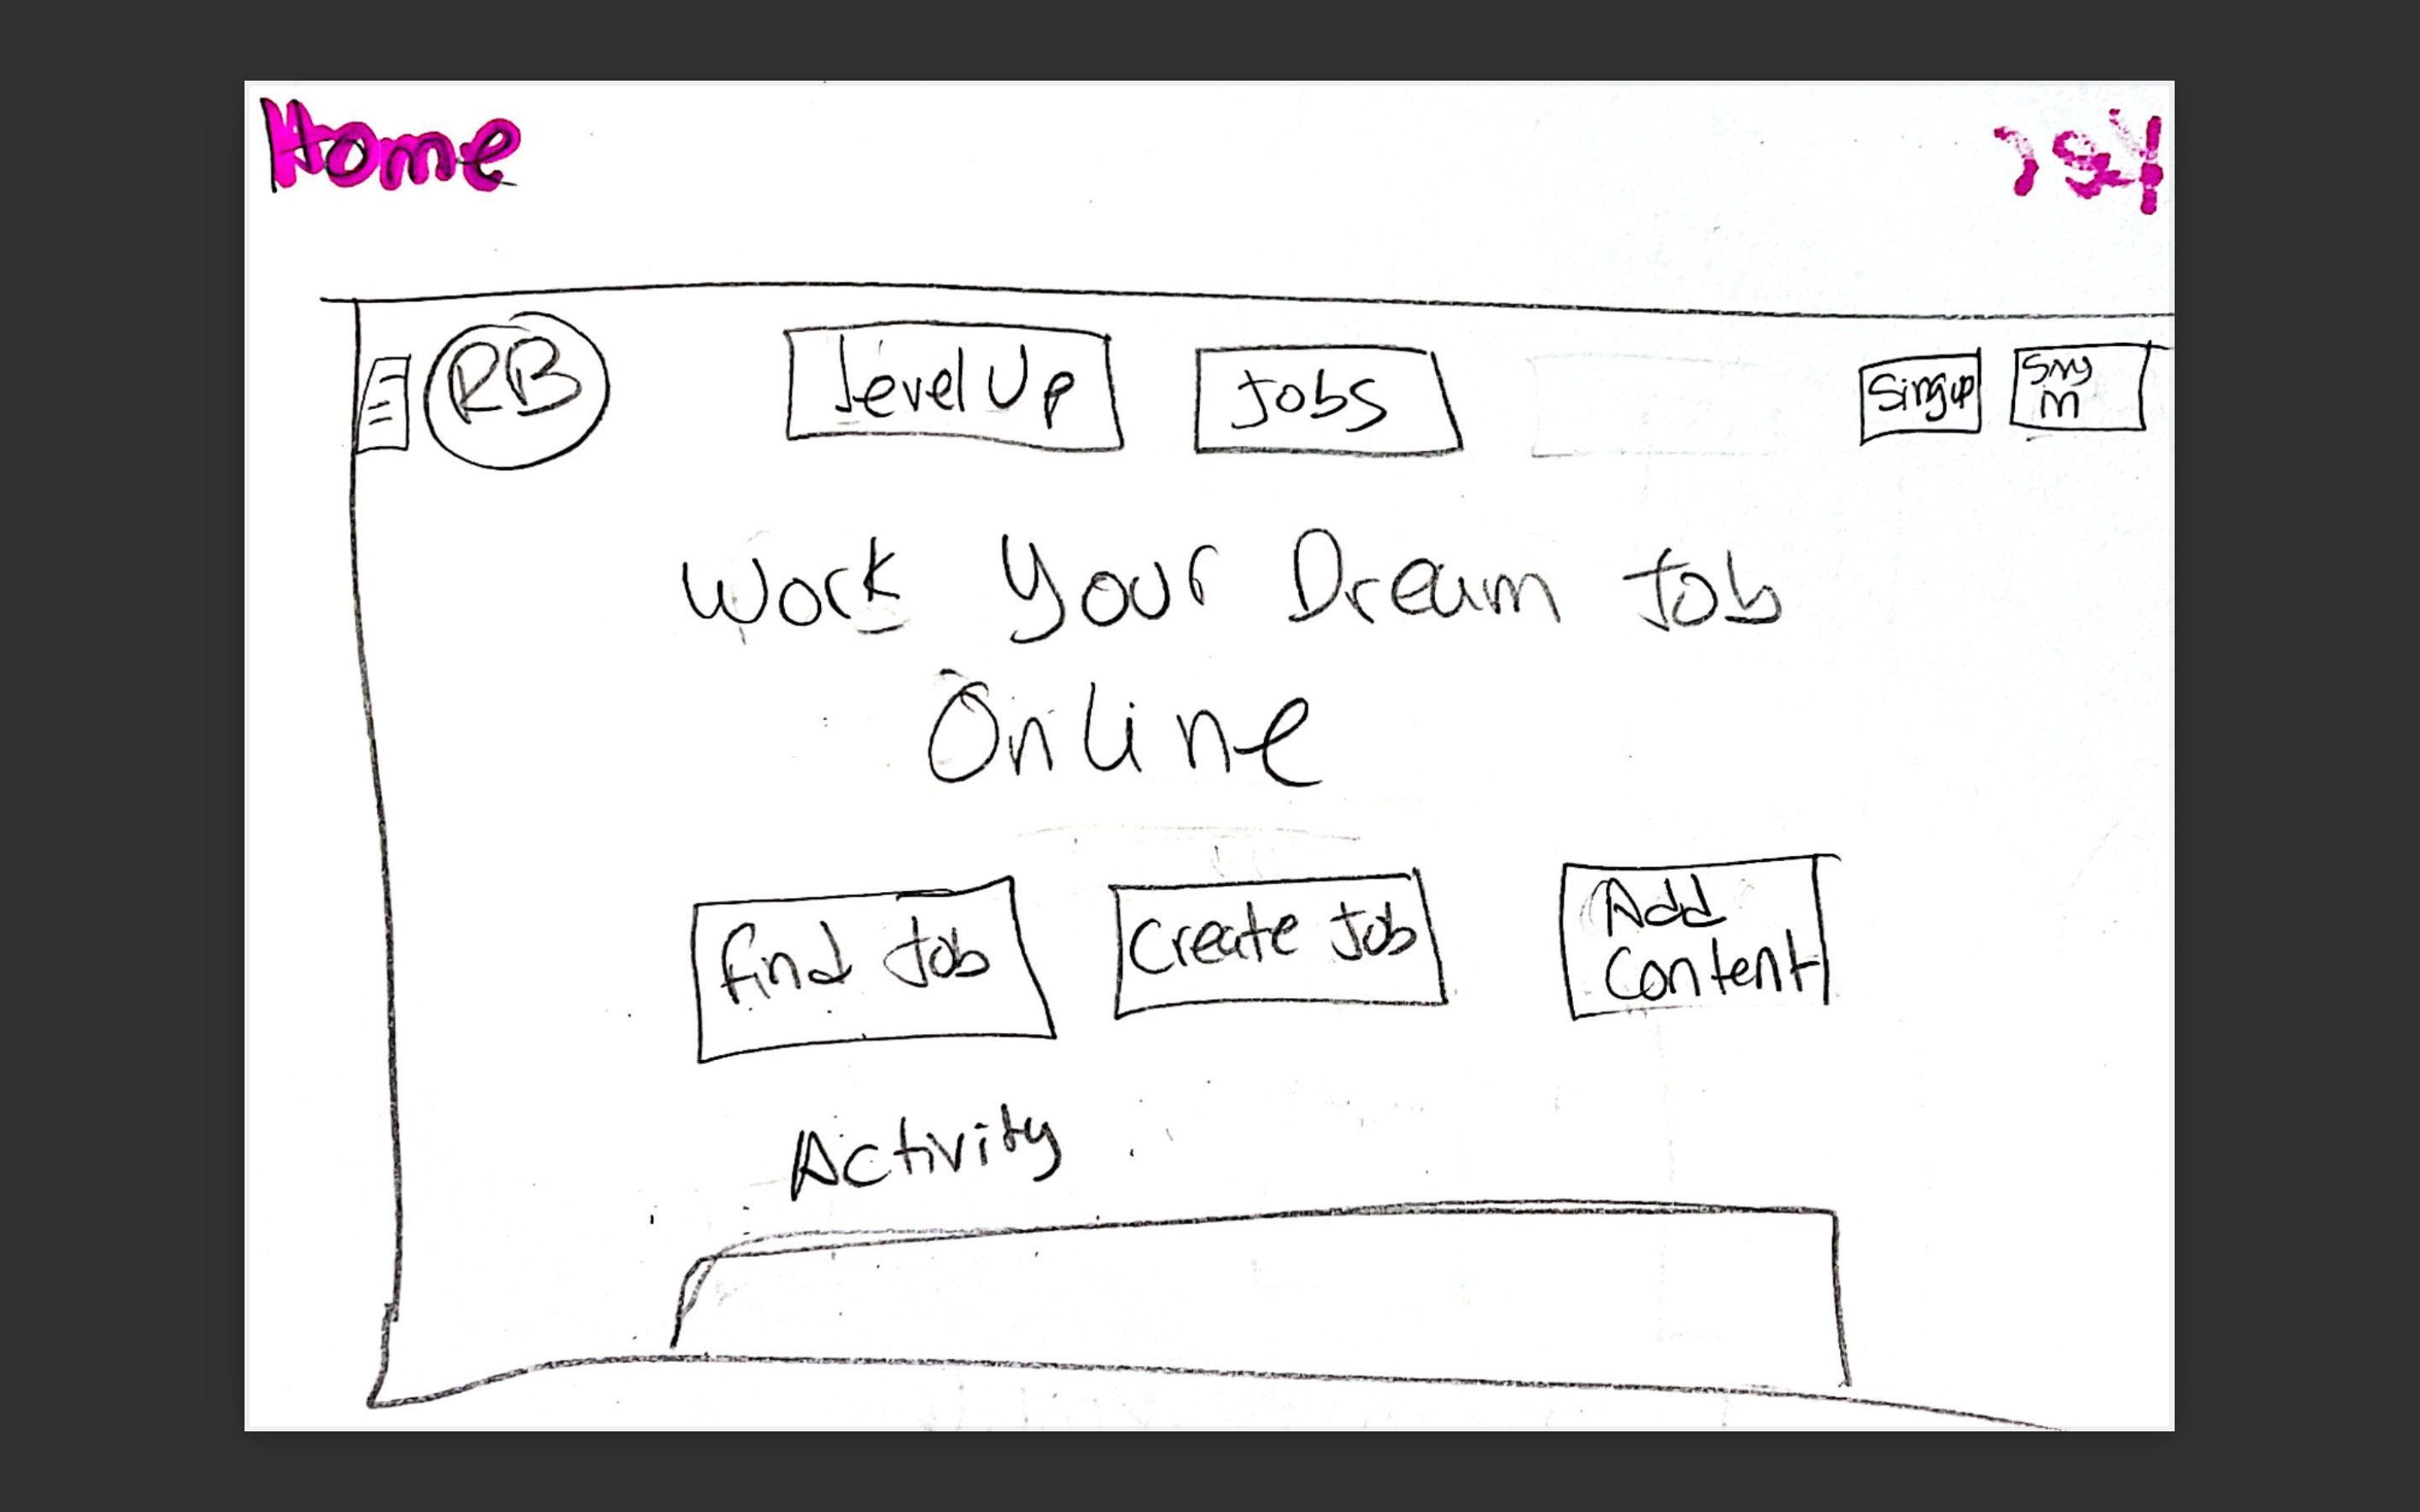 Home
RB
Level Up
Jobs
Singup
Sing
in
Work Your Dream Job
Online
find Job
Create Job
Add
Content
Activity